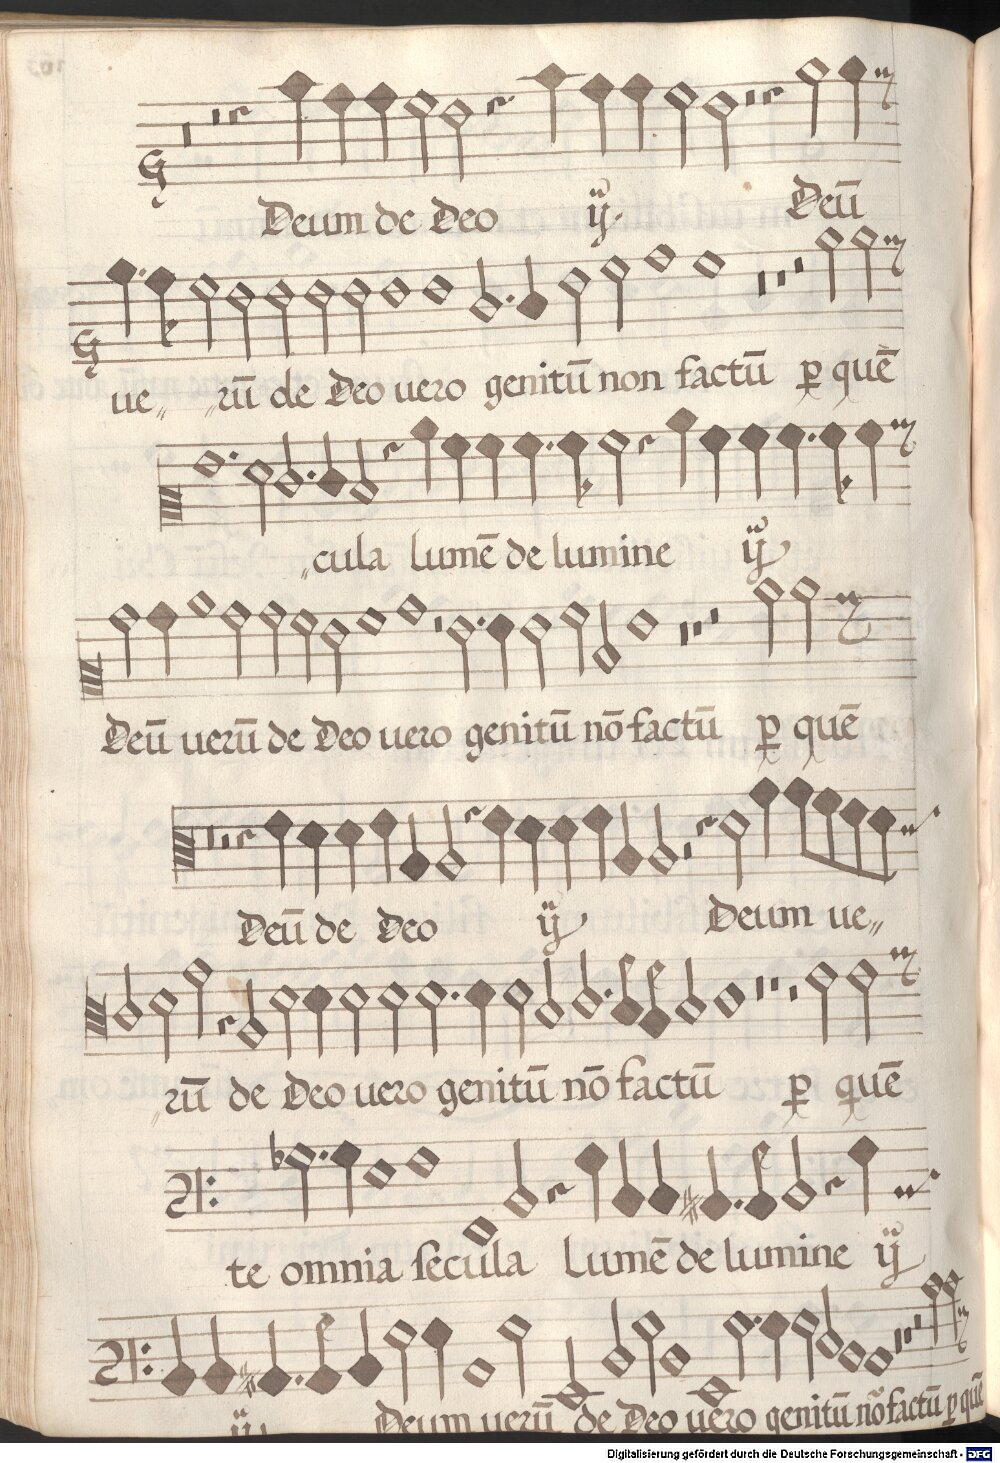 Deum de Deo ij. Deū
ue„ „rū de Deo uero genitū non factū p̱ quē
„cula lumē de lumine ij
Deū uerū de Deo uero genitū nō factū p̱ quē
Deū de Deo ij Deum ue„
„rū de Deo uero genitū nō factū p̱ quē
te omnia secula Lumē de lumine ij
ij Deum uerū de Deo uero genitū nō factū p̱ quē
Digitalisierung gefördert durch die Deutsche Forschungsgemeinschaft - DFG